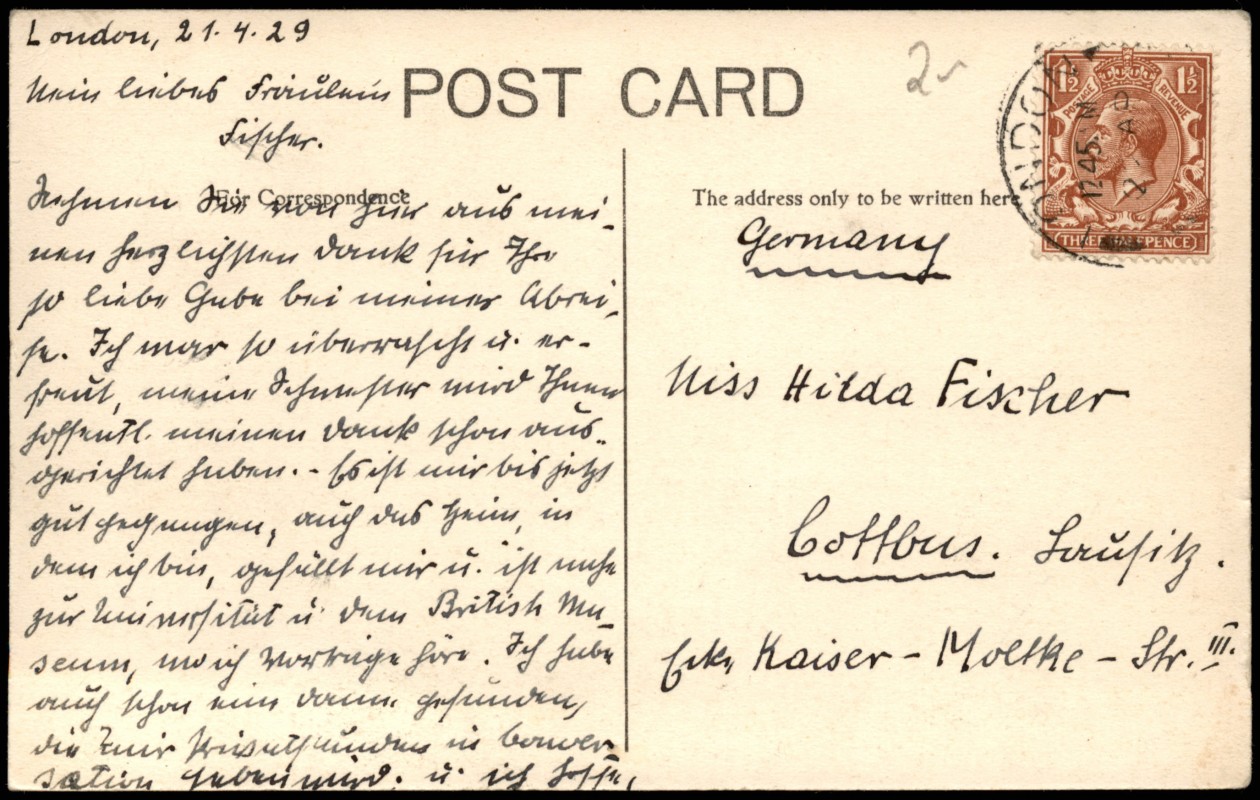 London, 21.4.29
Mein liebes Fräulein
Fischer.
POST CARD
For Correspondence
Nehmen Sie von hier aus mei-
nen herzlichsten Dank für Ihre
so liebe Gabe bei meiner Abrei-
se. Ich war so überrascht u. er-
freut, meine Schwester wird Ihnen
hoffentl. meinen Dank schon aus-
gerichtet haben. - Es ist mir bis jetzt
gut gegangen, auch das Heim, in
dem ich bin, gefällt mir u. ist nahe
zur Universität u. dem British Mu-
seum, wo ich Vorträge höre. Ich habe
auch schon eine Dame gefunden,
die mir Privatstunden in Conver-
sation geben wird. u. ich hoffe,
2-
The address only to be written here
Germany
Miss Hilda Fischer
Cottbus. Lausitz.
Ecke Kaiser - Moltke - Str. III.
LONDON
12 45 PM
POSTAGE
REVENUE
1½
1½
THREE HALFPENCE